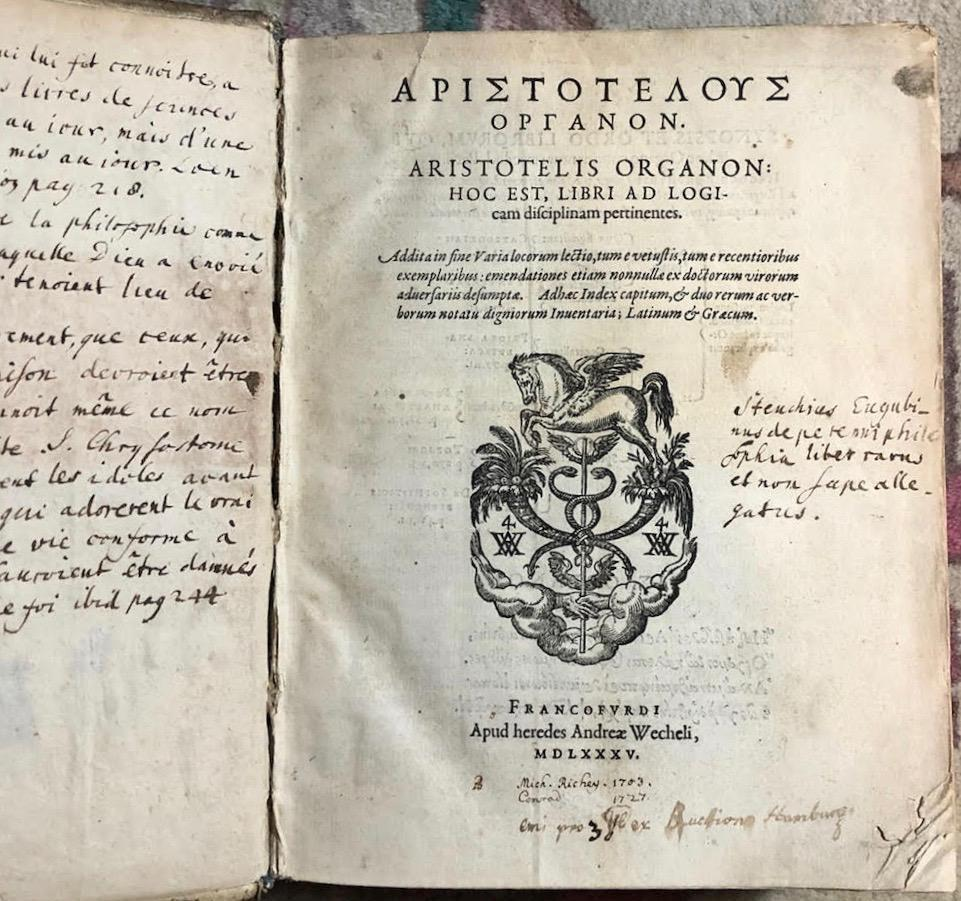 lui fit connoistre, a
livres de sciences
au iour, mais d'une
mis au iour.
pag 218.
la philosophie comme
laquelle Dieu a envoié
tenoient lieu de
que ceux, qui
devroient être
même ce nom
S. Chrysostome
les idoles avant
qui adorerent le vrai
vie conforme à
auroient être damnés
foi ibid pag 244
ΑΡΙΣΤΟΤΕΛΟΥΣ
ΟΡΓΑΝΟΝ.
ARISTOTELIS ORGANON:
HOC EST, LIBRI AD LOGI-
cam disciplinam pertinentes.
Addita in fine Varia locorum lectio, tum e vetustis, tum e recentioribus
exemplaribus: emendationes etiam nonnullæ ex doctorum virorum
adversariis desumptæ. Adhæc Index capitum, & duo rerum ac ver-
borum notatu digniorum Inventaria; Latinum & Græcum.
Steuchius Eugubi-
nus de perenni philo
sophia liber rarus
et non sæpe alle-
gatus.
4 4
FRANCOFVRDI
Apud heredes Andreæ Wecheli,
MDLXXXV.
Mich. Richey. 1703.
Conrad 1727.
emi pro 3 ex Auctione Hamburg